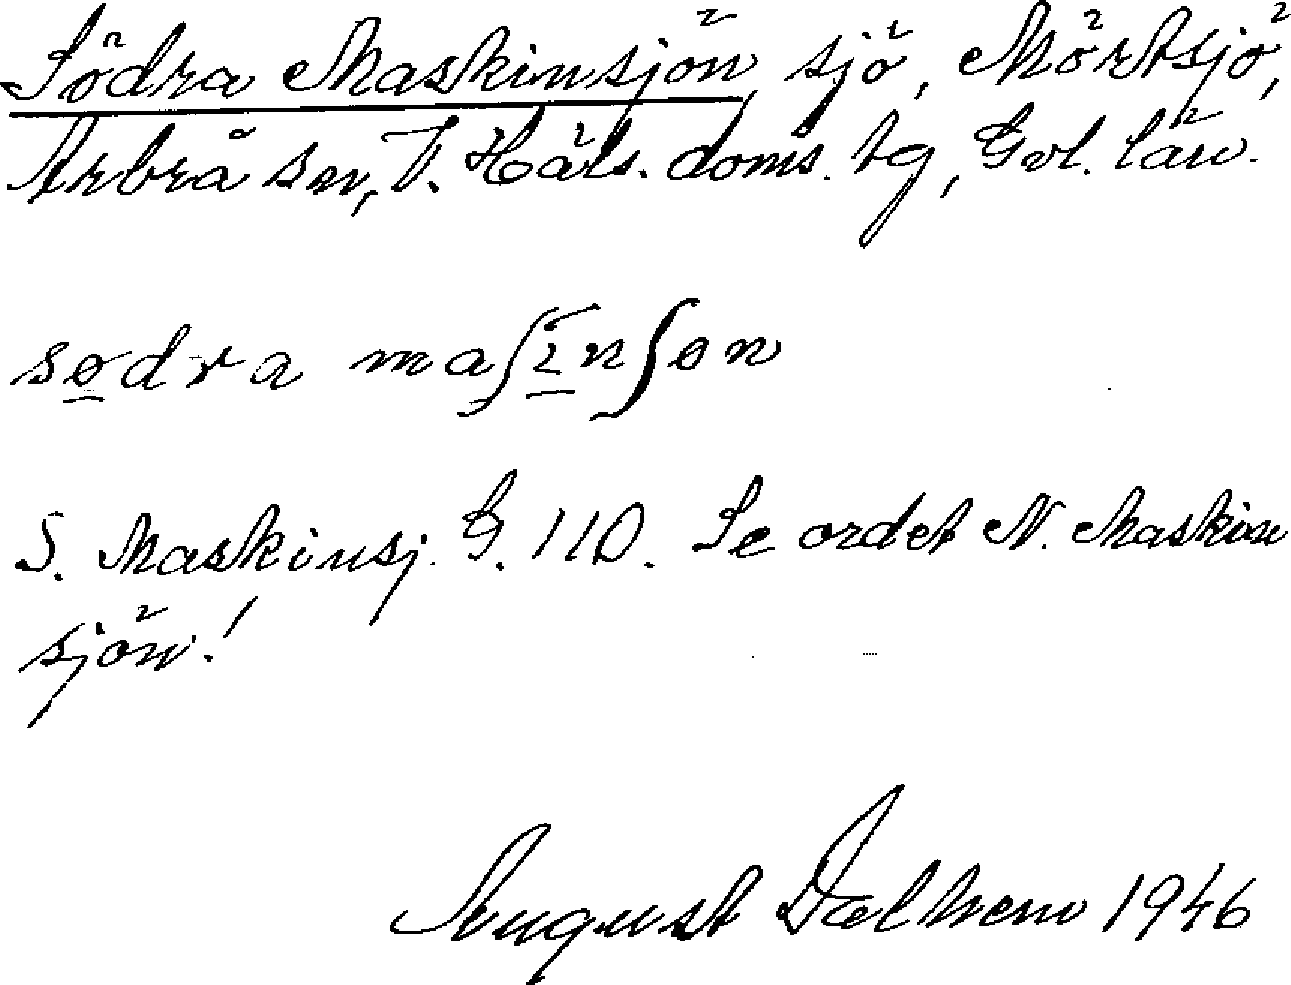 Södra Maskinsjön, sjö, Mörtsjö,
Arbrå sn, V. Häls. doms. tg, Gvl. län.
sødra maʃīnʃøn
S. Maskinsj. G. 110. Se ordet N. Maskin
sjön!
August Dalhem 1946